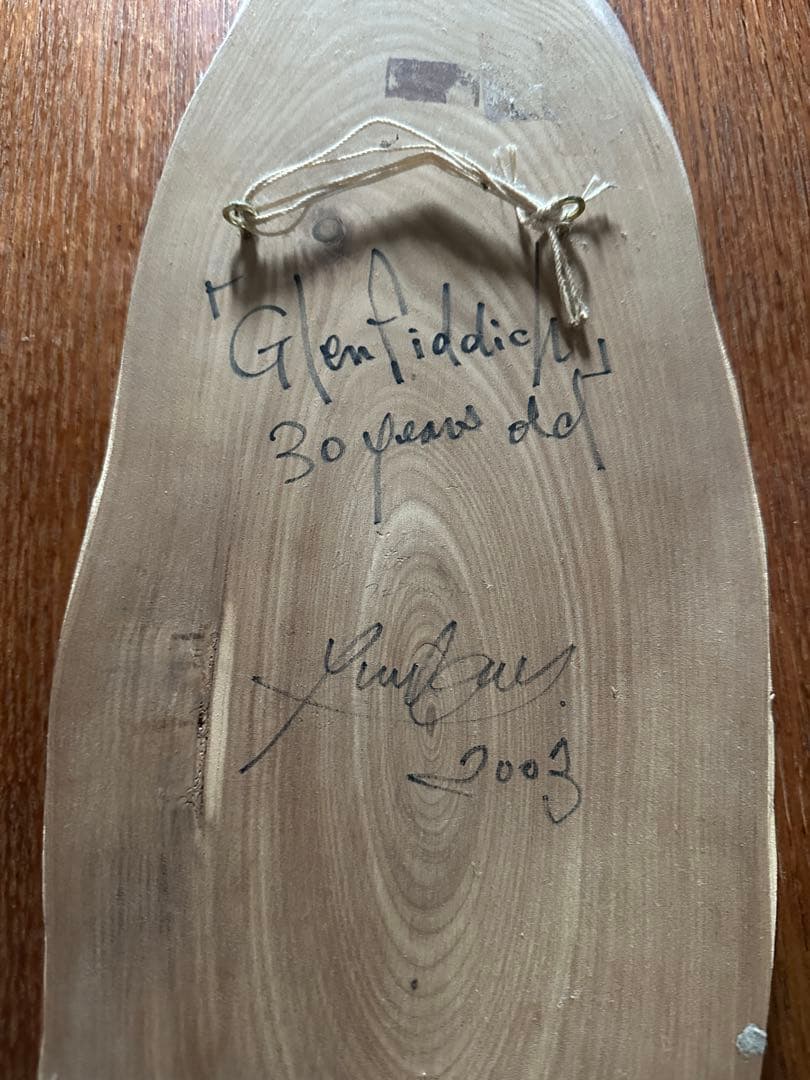 「Glenfiddich」
30 years old
2003